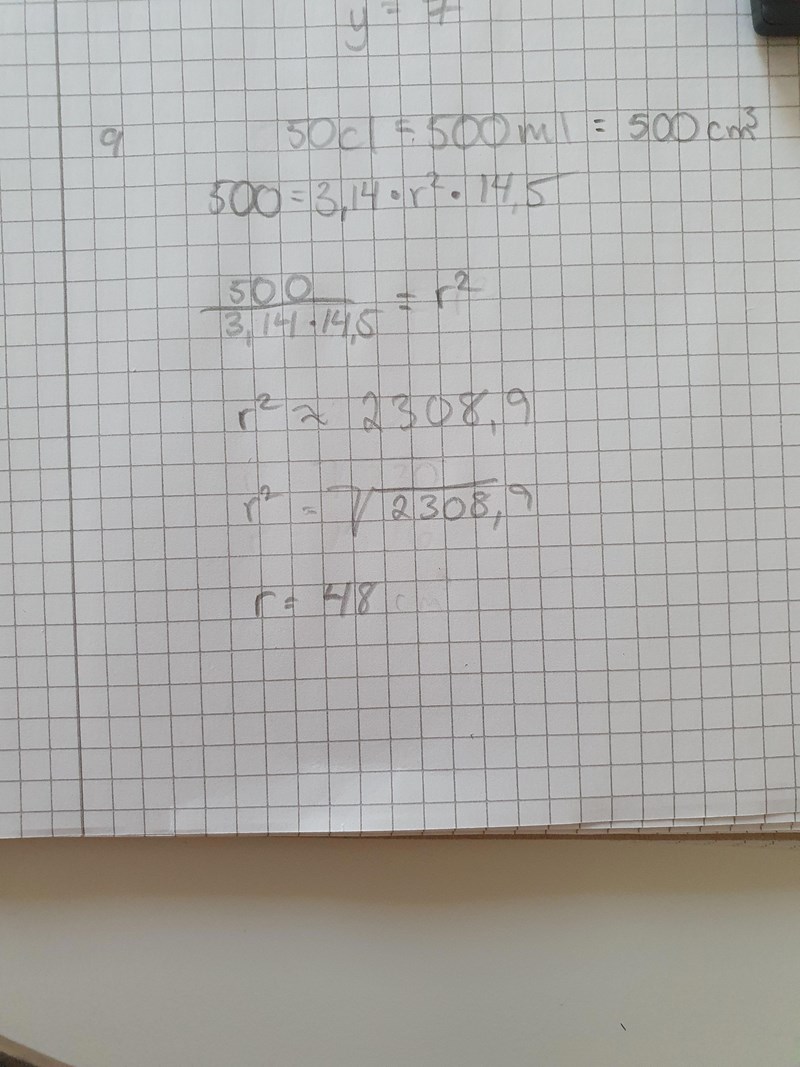 y = 7
9 50cl = 500ml = 500cm³
500 = 3,14 · r² · 14,5
500 / 3,14 · 14,5 = r²
r² ≈ 2308,9
r² = √2308,9
r = 48 cm